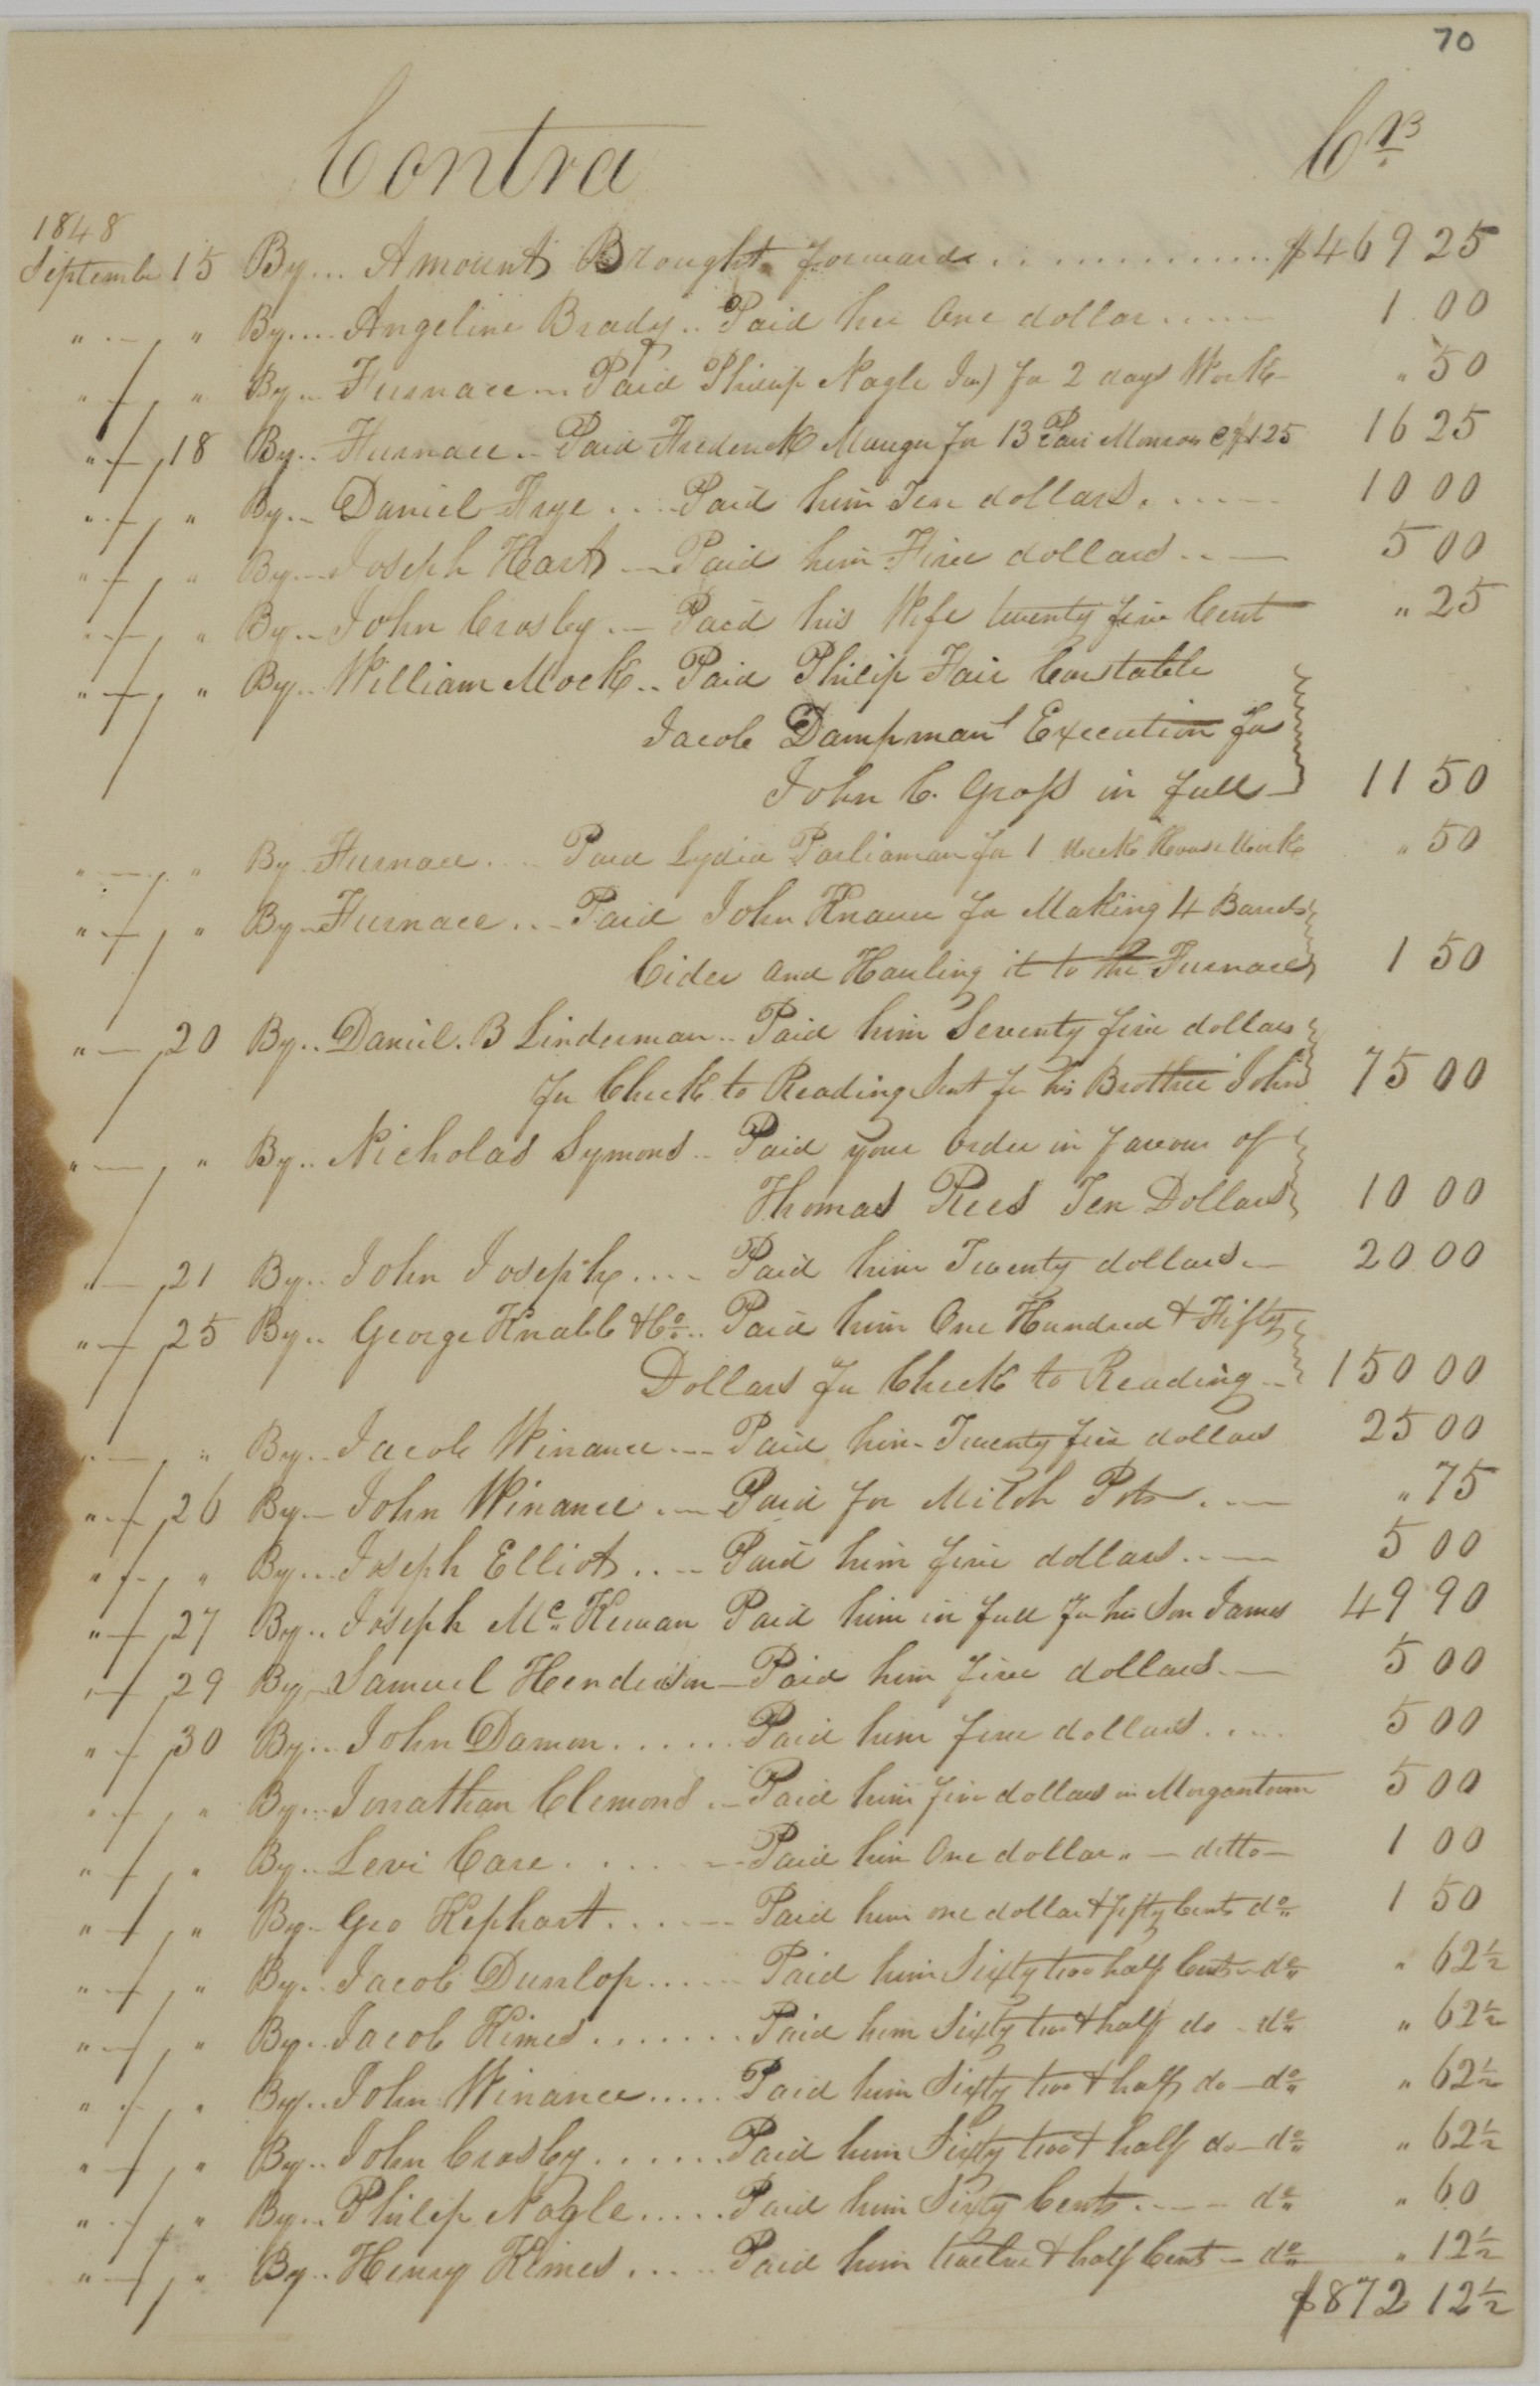 70
Contra Crs
1848
September 15 By... Amount Brought forward ............ $469 25
" " By.... Angeline Brady .. Paid her One dollar ..... 1 00
" " By... Furnace ... Paid Philip Nagle Jnr) for 2 days Work " 50
" 18 By.. Furnace .. Paid Frederick Mauger for 13 Pair @ $1.25 16 25
" " By.. Daniel Frye .... Paid him Ten dollars ..... 10 00
" " By... Joseph Hart ... Paid him Five dollars ... 5 00
" " By.. John Crosby .. Paid his Wife twenty five Cent " 25
" " By.. William Mock .. Paid Philip Fair Constable
Jacob Dampmans Execution for
John C. Gross in full 11 50
" " By Furnace .... Paid Lydia Parliaman for 1 Week House Work " 50
" " By Furnace ... Paid John Knauer for Making 4 Barrels
Cider and Hauling it to the Furnace 1 50
" 20 By.. Daniel. B Linderman .. Paid him Seventy five dollars
for Check to Reading Sent for his Brother John 75 00
" " By.. Nicholas Symons .. Paid your Order in favour of
Thomas Rees Ten Dollars 10 00
" 21 By.. John Joseph .... Paid him Twenty dollars 20 00
" 25 By.. George Knabb & Co .. Paid him One Hundred & Fifty
Dollars for Check to Reading 150 00
" " By.. Jacob Winance ... Paid him Twenty five dollars 25 00
" 26 By.. John Winance ... Paid for Milch Pots ... " 75
" " By... Joseph Elliot .... Paid him five dollars .... 5 00
" 27 By.. Joseph Mc Kewan Paid him in full for his Son James 49 90
" 29 By Samuel Henderson Paid him five dollars .. 5 00
" 30 By.. John Damon ...... Paid him five dollars .... 5 00
" " By... Jonathan Clemons .. Paid him five dollars in Morgantown 5 00
" " By.. Levi Care ...... Paid him One dollar " ditto 1 00
" " By.. Geo Kephart ...... Paid him one dollar & fifty Cents do 1 50
" " By.. Jacob Dunlop ..... Paid him Sixty two half Cents do " 62½
" " By.. Jacob Kimes ....... Paid him Sixty two & half do do " 62½
" " By.. John Winance ..... Paid him Sixty two & half do do " 62½
" " By.. John Crosby ...... Paid him Sixty two & half do do " 62½
" " By... Philip Nagle ..... Paid him Sixty Cents .... do " 60
" " By.. Henry Kimes ..... Paid him twelve & half Cent do " 12½
$872 12½